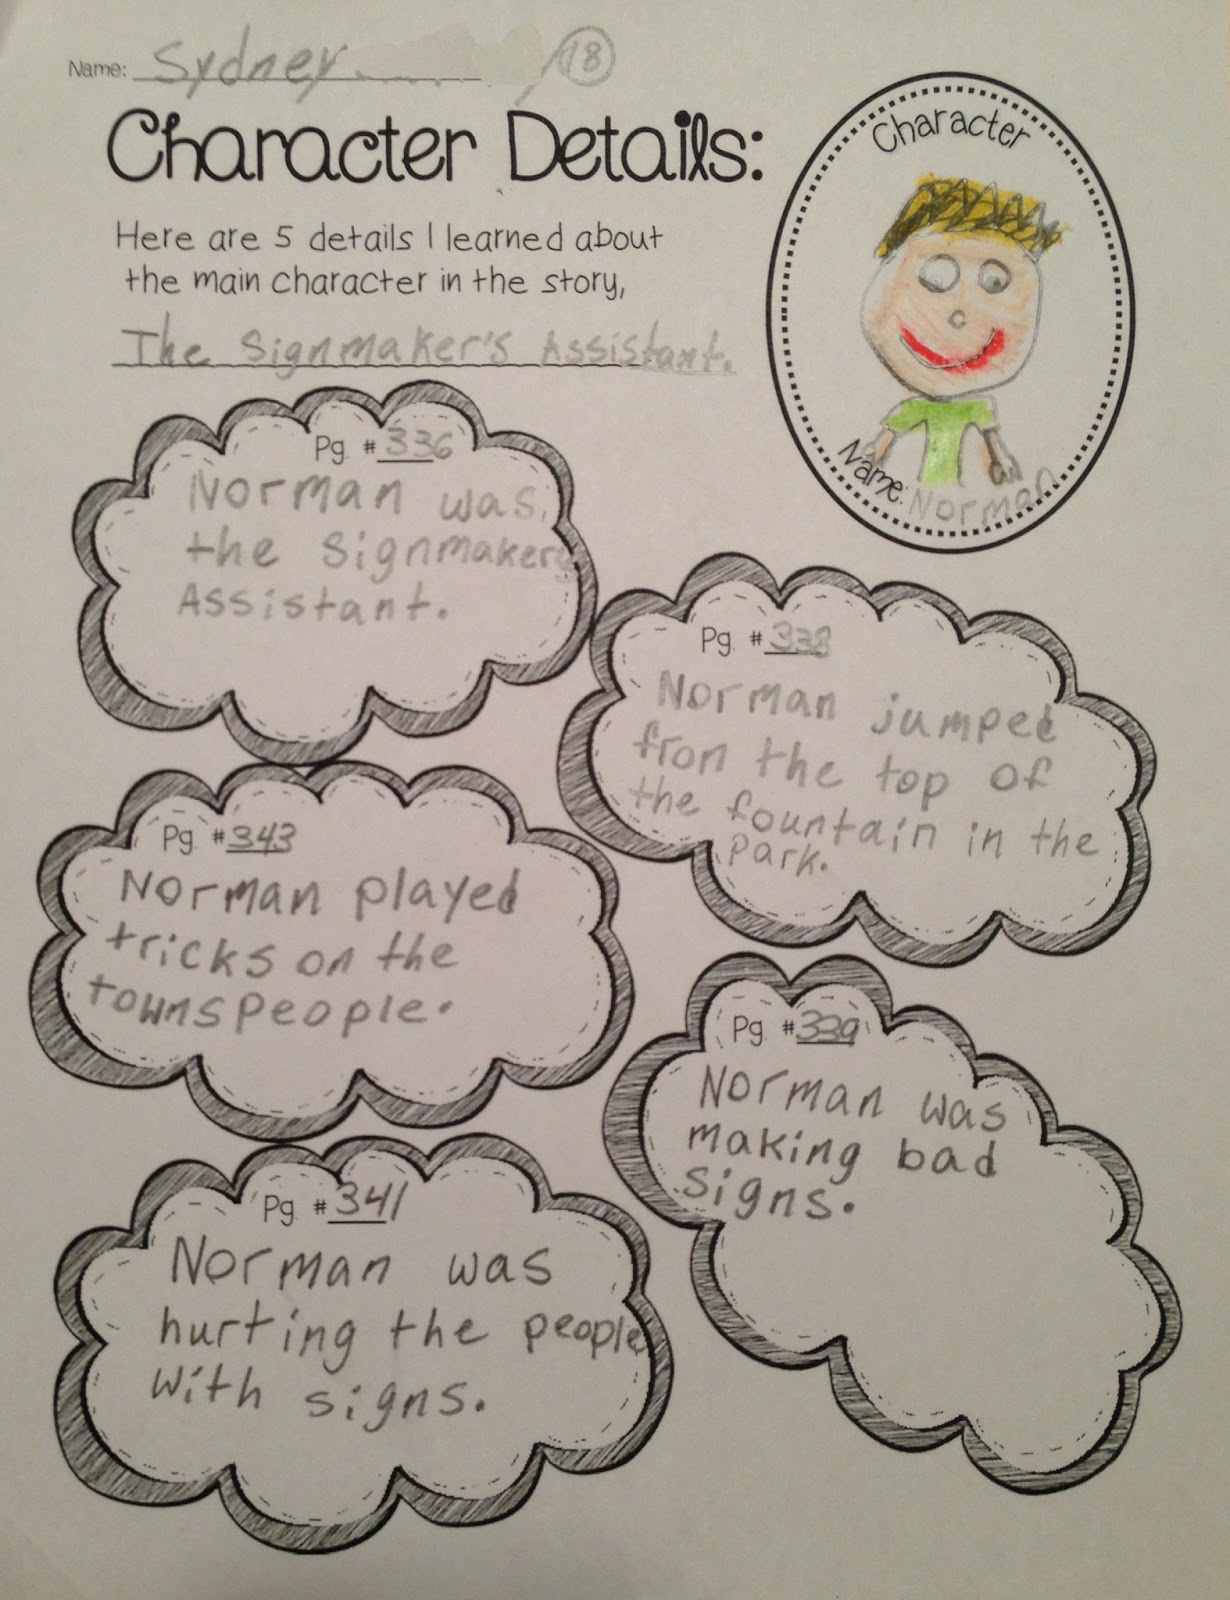 Name: Sydney 18
Character Details:
Here are 5 details I learned about
the main character in the story,
The Signmaker's Assistant.
Character
Name: Norman
Pg. #336
Norman was
the Signmakers
Assistant.
Pg. #338
Norman jumped
fron the top of
the fountain in the
park.
Pg. #343
Norman played
tricks on the
townspeople.
Pg. #339
Norman was
making bad
signs.
Pg. #341
Norman was
hurting the people
with signs.